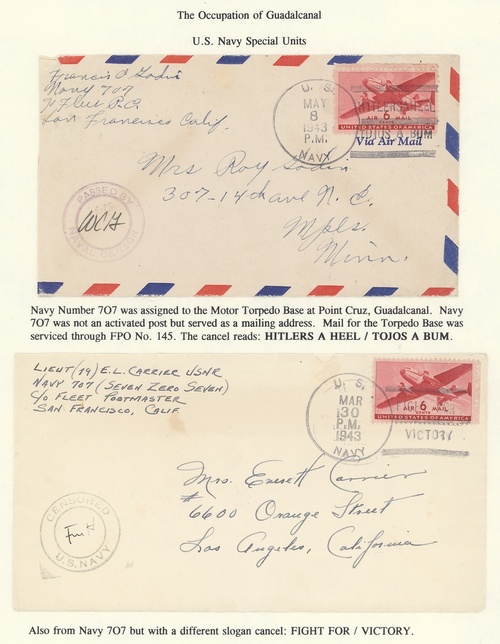 The Occupation of Guadalcanal
U.S. Navy Special Units
Francis A
Navy 707
℅ Fleet P.O.
San Francisco Calif.
U. S.
MAY
8
1943
P.M.
NAVY
HITLERS A HEEL
TOJOS A BUM
AIR 6 MAIL
CENTS
UNITED STATES OF AMERICA
Via Air Mail
Mrs Roy
307-14th ave N. E.
Mpls.
Minn.
PASSED BY
NAVAL CENSOR
Navy Number 7O7 was assigned to the Motor Torpedo Base at Point Cruz, Guadalcanal. Navy
7O7 was not an activated post but served as a mailing address. Mail for the Torpedo Base was
serviced through FPO No. 145. The cancel reads: HITLERS A HEEL / TOJOS A BUM.
LIEUT (jg) E.L. CARRIER USNR
NAVY 707 (SEVEN ZERO SEVEN)
C/O FLEET POSTMASTER
SAN FRANCISCO, CALIF
U. S.
MAR
30
P.M.
1943
NAVY
AIR 6 MAIL
CENTS
UNITED STATES OF AMERICA
VICTORY
Mrs. Everett Carrier
# 6600 Orange Street
Los Angeles, California
CENSORED
U.S. NAVY
Also from Navy 7O7 but with a different slogan cancel: FIGHT FOR / VICTORY.